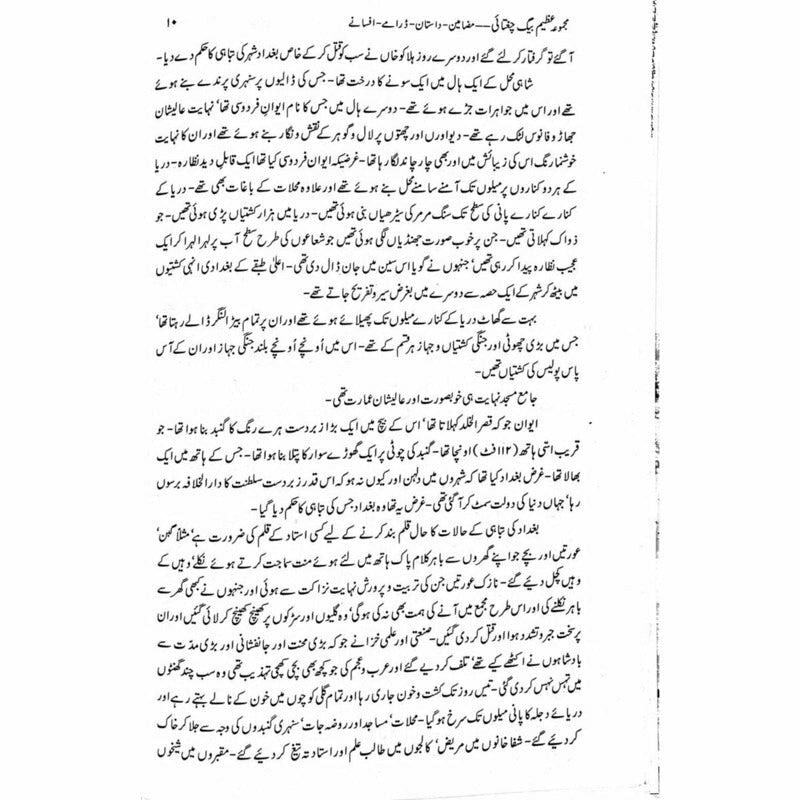 مجموعہ عظیم بیگ چغتائی — مضامین - داستان - ڈرامے - افسانے ۱۰
آگئے تو گرفتار کر لئے گئے اور دوسرے روز ہلاکو خاں نے سب کو قتل کر کے خاص بغداد شہر کی تباہی کا حکم دے دیا-
شاہی محل کے ایک ہال میں ایک سونے کا درخت تھا- جس کی ڈالیوں پر سنہری پرندے بنے ہوئے
تھے اور اس میں جواہرات جڑے ہوئے تھے- دوسرے ہال میں جس کا نام ایوانِ فردوسی تھا' نہایت عالیشان
جھاڑ و فانوس لٹک رہے تھے- دیواورں اور چھتوں پر لال و گوہر کے نقش و نگار بنے ہوئے تھے اور ان کا نہایت
خوشنما رنگ اس کی زیبائش میں اور بھی چار چاند لگا رہا تھا- غرضیکہ ایوان فردوسی کیا تھا ایک قابلِ دید نظارہ- دریا
کے ہر دو کناروں پر میلوں تک آمنے سامنے محل بنے ہوئے تھے اور علاوہ محلات کے باغات بھی تھے- دریا کے
کنارے کنارے پانی کی سطح تک سنگ مرمر کی سیڑھیاں بنی ہوئی تھیں- دریا میں ہزار کشتیاں پڑی ہوئی تھیں- جو
ذواک کہلاتی تھیں- جن پر خوب صورت جھنڈیاں لگی ہوئی تھیں جو شعاعوں کی طرح سطح آب پر لہرا لہرا کر ایک
عجیب نظارہ پیدا کر رہی تھیں' جنہوں نے گویا اس سین میں جان ڈال دی تھی- اعلیٰ طبقے کے بغدادی انہی کشتیوں
میں بیٹھ کر شہر کے ایک حصہ سے دوسرے میں بغرض سیر و تفریح جاتے تھے-
بہت سے گھاٹ دریا کے کنارے میلوں تک پھیلائے ہوئے تھے اور ان پر تمام بیڑا لنگر ڈالے رہتا تھا'
جس میں بڑی چھوٹی اور جنگی کشتیاں و جہاز ہر قسم کے تھے- اس میں اُونچے اُونچے بلند جنگی جہاز اور ان کے آس
پاس پولیس کی کشتیاں تھیں-
جامع مسجد نہایت ہی خوبصورت اور عالیشان عمارت تھی-
ایوان جو کہ قصر الخلد کہلاتا تھا' اس کے بیچ میں ایک بڑا زبردست ہرے رنگ کا گنبد بنا ہوا تھا- جو
قریب اسّی ہاتھ (۱۱۲ فٹ) اونچا تھا- گنبد کی چوٹی پر ایک گھوڑے سوار کا پتلا بنا ہوا تھا- جس کے ہاتھ میں ایک
بھالا تھا- غرض بغداد کیا تھا کہ شہروں میں دلہن اور کیوں نہ ہو کہ اس قدر زبردست سلطنت کا دارالخلافہ برسوں
رہا' جہاں دنیا کی دولت سمٹ کر آگئی تھی- غرض یہ تھا وہ بغداد جس کی تباہی کا حکم دیا گیا-
بغداد کی تباہی کے حالات کا حال قلم بند کرنے کے لیے کسی استاد کے قلم کی ضرورت ہے' مثلاً گبن'
عورتیں اور بچے جو اپنے گھروں سے باہر کلام پاک ہاتھ میں لئے ہوئے منت سماجت کرتے ہوئے نکلے' وہیں کے
وہیں کچل دیئے گئے- نازک عورتیں جن کی تربیت و پرورش نہایت نزاکت سے ہوئی اور جنہوں نے کبھی گھر سے
باہر نکلنے کی اور اس طرح مجمع میں آنے کی ہمت بھی نہ کی ہوگی' وہ گلیوں اور سڑکوں پر کھینچ کھینچ کر لائی گئیں اور ان
پر سخت جبر و تشدد ہوا اور قتل کر دی گئیں- صنعتی اور علمی خزانے جو کہ بڑی محنت اور جانفشانی اور بڑی مدّت سے
بادشاہوں نے اکٹھے کیے تھے' تلف کر دیے گئے اور عرب و عجم کی جو کچھ بھی بچی کھچی تہذیب تھی وہ سب چند گھنٹوں
میں تہس نہس کر دی گئی- تیس روز تک کشت و خون جاری رہا اور تمام گلی کوچوں میں خون کے نالے بہتے رہے اور
دریائے دجلہ کا پانی میلوں تک سرخ ہو گیا- محلات' مساجد اور روضہ جات' سنہری گنبدوں کی وجہ سے جلا کر خاک
کر دیئے گئے- شفاخانوں میں مریض' کالجوں میں طالب علم اور استاد تہ تیغ کر دیئے گئے- مقبروں میں شیخوں